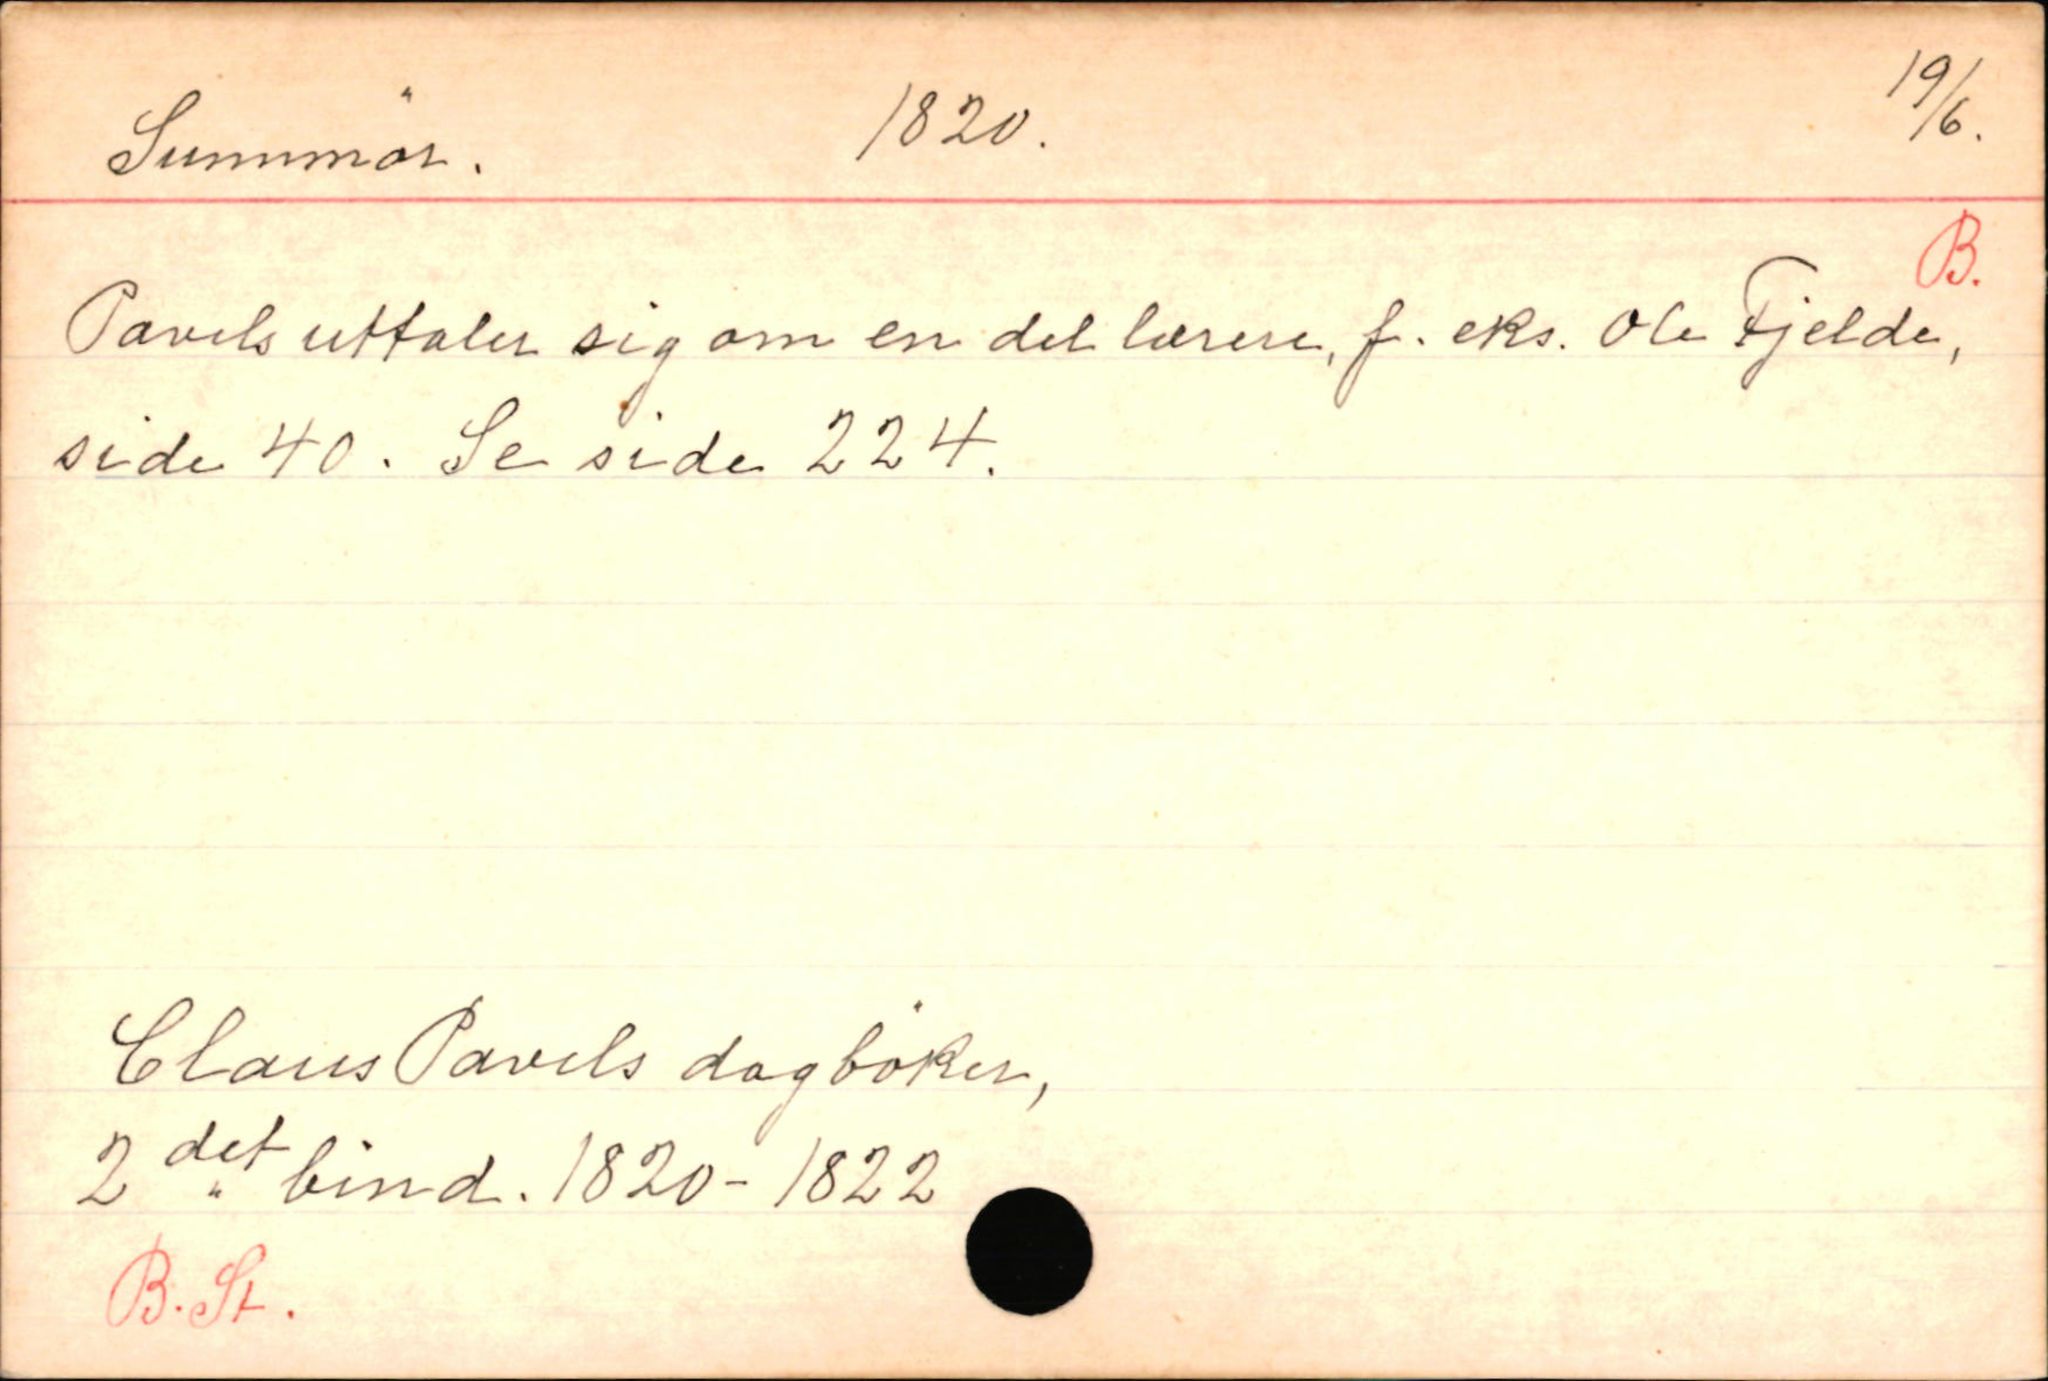 Sunnmör. 1820. 19/6.
B.
Pavels uttaler sig om en del lærere, f. eks. Ole Fjelde,
side 40. Se side 224.
Claus Pavels dagböker,
2det bind. 1820-1822
B. St.